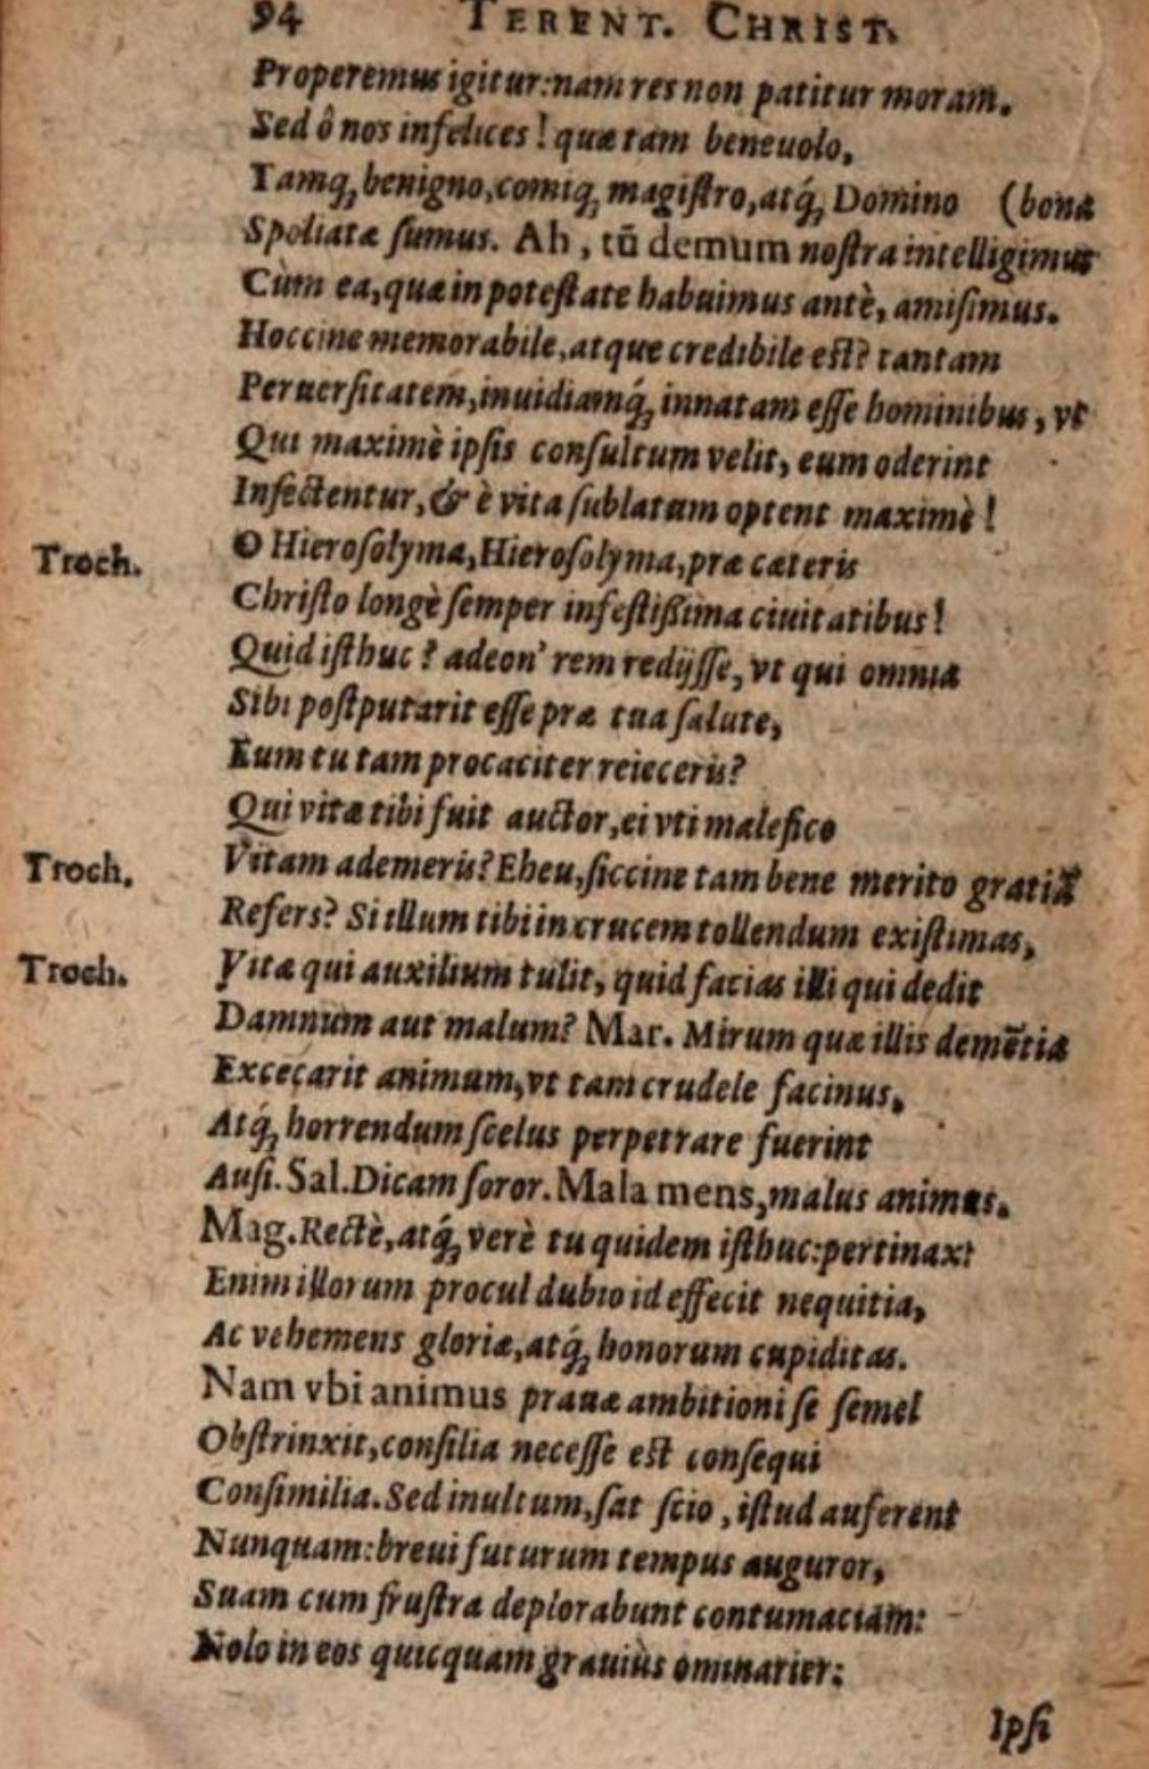 94 TERENT. CHRIST.
Properemus igitur:nam res non patitur moram.
Sed ô nos infelices! quæ tam beneuolo,
Tamq́; benigno,comiq́; magiſtro,atq́; Domino (bona
Spoliatæ ſumus. Ah, tū demum noſtra intelligimus
Cùm ea,quæ in poteſtate habuimus antè, amiſimus.
Hoccine memorabile,atque credibile eſt? tantam
Peruerſitatem,inuidiamq́; innatam eſſe hominibus, vt
Qui maximè ipſis conſultum velit, eum oderint
Inſectentur,& è vita ſublatum optent maximè!
Troch. O Hieroſolyma,Hieroſolyma,præ cæteris
Chriſto longè ſemper infeſtißima ciuitatibus!
Quid iſthuc? adeon' rem redijſſe, vt qui omnia
Sibi poſtputarit eſſe præ tua ſalute,
Eum tu tam procaciter reieceris?
Qui vitæ tibi fuit auctor,ei vti malefico
Troch. Vitam ademeris? Eheu,ſiccine tam bene merito gratiā
Refers? Si illum tibi in crucem tollendum exiſtimas,
Troch. Vitæ qui auxilium tulit, quid facias illi qui dedit
Damnum aut malum? Mar. Mirum quæ illis demētia
Excęcarit animum,vt tam crudele facinus,
Atq́; horrendum ſcelus perpetrare fuerint
Auſi. Sal. Dicam ſoror. Mala mens,malus animus.
Mag. Rectè,atq́; verè tu quidem iſthuc:pertinax:
Enim illorum procul dubio id effecit nequitia,
Ac vehemens gloriæ,atq́; honorum cupiditas.
Nam vbi animus prauæ ambitioni ſe ſemel
Obſtrinxit,conſilia neceſſe eſt conſequi
Conſimilia. Sed inultum,ſat ſcio, iſtud auferent
Nunquam:breui futurum tempus auguror,
Suam cum fruſtra deplorabunt contumaciam:
Nolo in eos quicquam grauiùs ominarier:
Ipſi